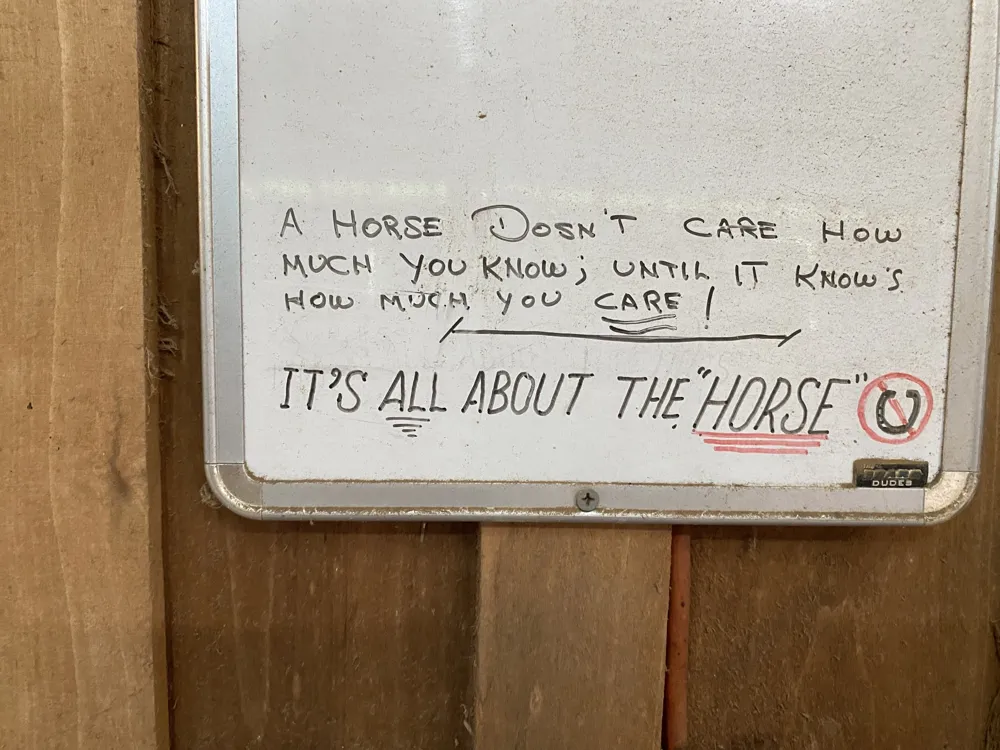 A HORSE DOSN'T CARE HOW
MUCH YOU KNOW; UNTIL IT KNOW'S
HOW MUCH YOU CARE!
IT'S ALL ABOUT THE "HORSE"
DUDES